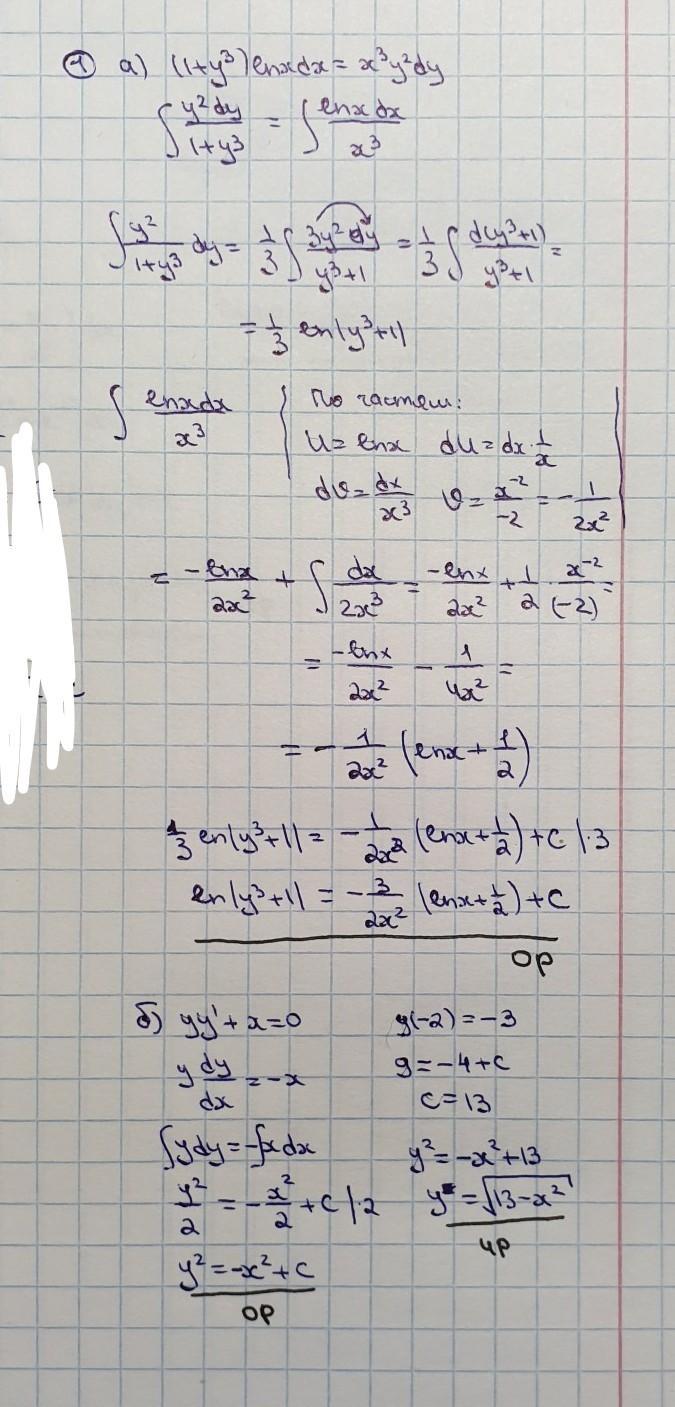 ① а) (1+y³)lnxdx = x³y²dy
∫ y²dy/(1+y³) = ∫ lnxdx/x³
∫ y²/(1+y³) dy = 1/3 ∫ 3y²dy/(y³+1) = 1/3 ∫ d(y³+1)/(y³+1) =
= 1/3 ln|y³+1|
∫ lnxdx/x³ | По частям:
U = lnx dU = dx·1/x
dv = dx/x³ v = x⁻²/-2 = -1/2x²
= -lnx/2x² + ∫ dx/2x³ = -lnx/2x² + 1/2 · x⁻²/(-2) =
= -lnx/2x² - 1/4x² =
= -1/2x² (lnx + 1/2)
1/3 ln|y³+1| = -1/2x² (lnx + 1/2) + C |·3
ln|y³+1| = -3/2x² (lnx + 1/2) + C
ОР
б) yy' + x = 0
y dy/dx = -x
∫ydy = -∫xdx
y²/2 = -x²/2 + C |·2
y² = -x² + C
ОР
y(-2) = -3
9 = -4 + C
C = 13
y² = -x² + 13
y = √(13-x²)
ЧР